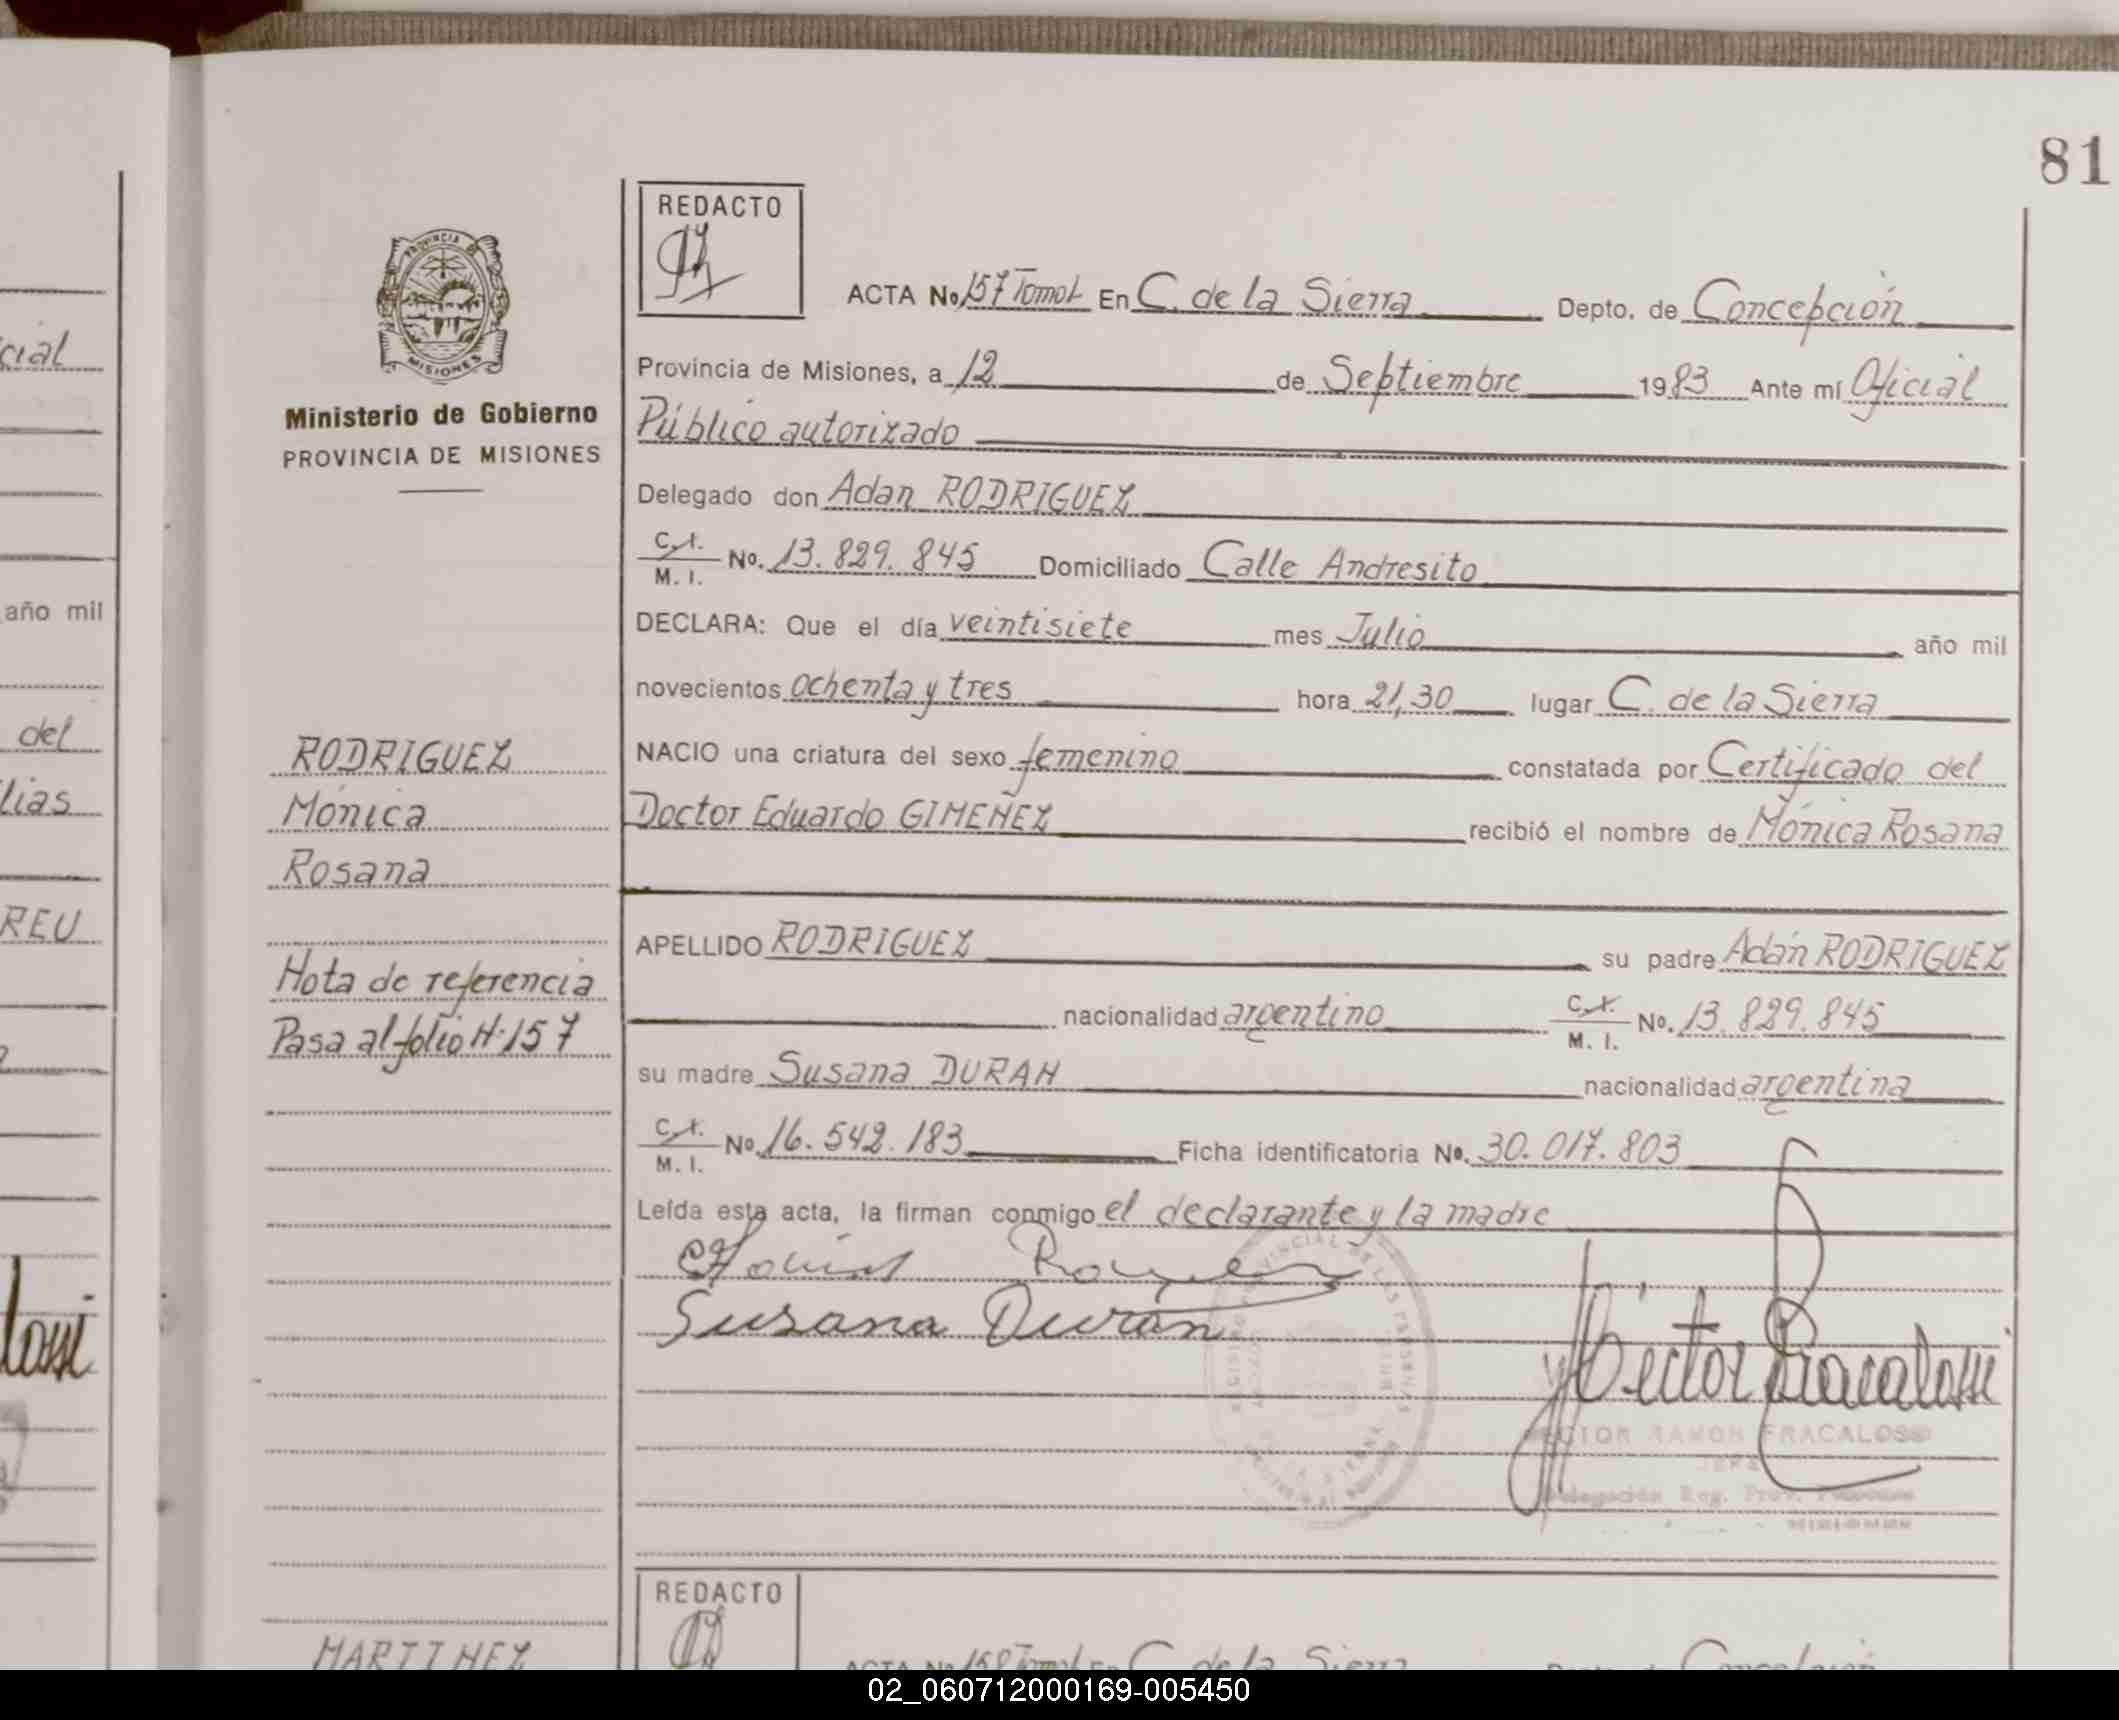 81
REDACTO
ACTA No. 157 Tomo I En C. de la Sierra Depto. de Concepción
Provincia de Misiones, a 12 de Septiembre 1983 Ante mí Oficial
Público autorizado
Delegado don Adan RODRIGUEZ
C. I. M. I. No. 13.829.845 Domiciliado Calle Andresito
DECLARA: Que el día veintisiete mes Julio año mil
novecientos ochenta y tres hora 21,30 lugar C. de la Sierra
NACIO una criatura del sexo femenino constatada por Certificado del
Doctor Eduardo GIMENEZ recibió el nombre de Mónica Rosana
APELLIDO RODRIGUEZ su padre Adán RODRIGUEZ
nacionalidad argentino C. I. M. I. No. 13.829.845
su madre Susana DURAN nacionalidad argentina
C. I. M. I. No. 16.542.183 Ficha identificatoria No. 30.017.803
Leída esta acta, la firman conmigo el declarante y la madre
Susana Durán
Héctor Fracalossi
HECTOR RAMON FRACALOSSI
JEFE
Delegación Reg. Prov. Personas
MISIONES
PROVINCIA DE
MISIONES
Ministerio de Gobierno
PROVINCIA DE MISIONES
RODRIGUEZ
Mónica
Rosana
Nota de referencia
Pasa al folio N° 157
MARTINEZ
REDACTO
ACTA No. 158 Tomo I En C. de la Sierra Depto. de Concepción
cial
año mil
del
lias
REU
lossi
02_060712000169-005450